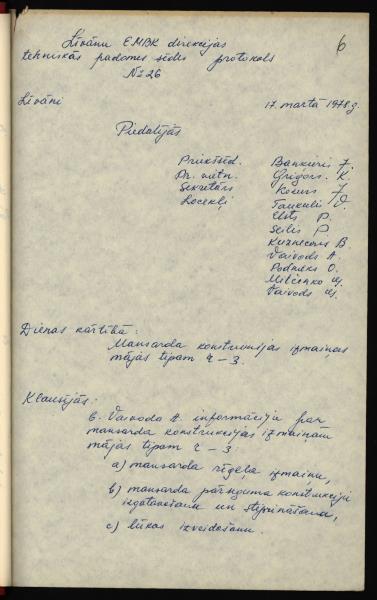 6
Līvānu EMBK direkcijas
tehniskās padomes sēdes protokols
Nr 26
Līvāni 17. martā 1978.g.
Piedalījās
Priekšsēd. Bankuris J.
Pr. vietn. Grigors. K.
Sekretārs J.
Locekļi V.
Elsts P.
Seilis P.
Kuzņecovs B.
Vaivods A.
Podnieks O.
Miļčenko
Vaivods
Dienas kārtībā:
Mansarda konstrukcijas izmaiņas
mājās tipam 2-3.
Klausījās:
b. Vaivoda A. informācija par
mansarda konstrukcijas izmaiņām
mājās tipam 2-3
a) mansarda rēgeļa izmaiņu,
b) mansarda pārseguma konstrukciju
izgatavošanu un stiprināšanu,
c) lūkas izveidošanu.